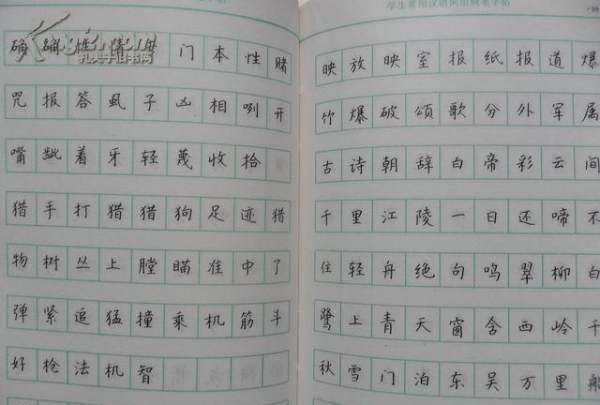 孔夫子旧书网
门 本 性 赌
咒 报 答 虱 子 凶 相 咧 开
嘴 龇 着 牙 轻 蔑 收 拾
猎 手 打 猎 猎 狗 足 迹 猎
物 树 丛 上 膛 瞄 准 中 了
弹 紧 追 猛 撞 乘 机 筋 斗
好 枪 法 机 智
映 放 映 室 报 纸 报 道 爆
竹 爆 破 颂 歌 分 外 军 属
古 诗 朝 辞 白 帝 彩 云 间
千 里 江 陵 一 日 还 啼 不
住 轻 舟 绝 句 鸣 翠 柳 白
鹭 上 青 天 窗 含 西 岭 千
秋 雪 门 泊 东 吴 万 里 船